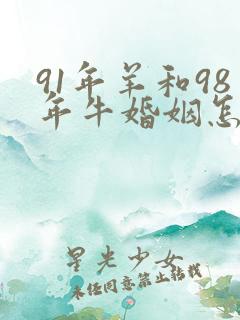 91年羊和98
年牛婚姻怎
星光少女
未经同意禁止转载